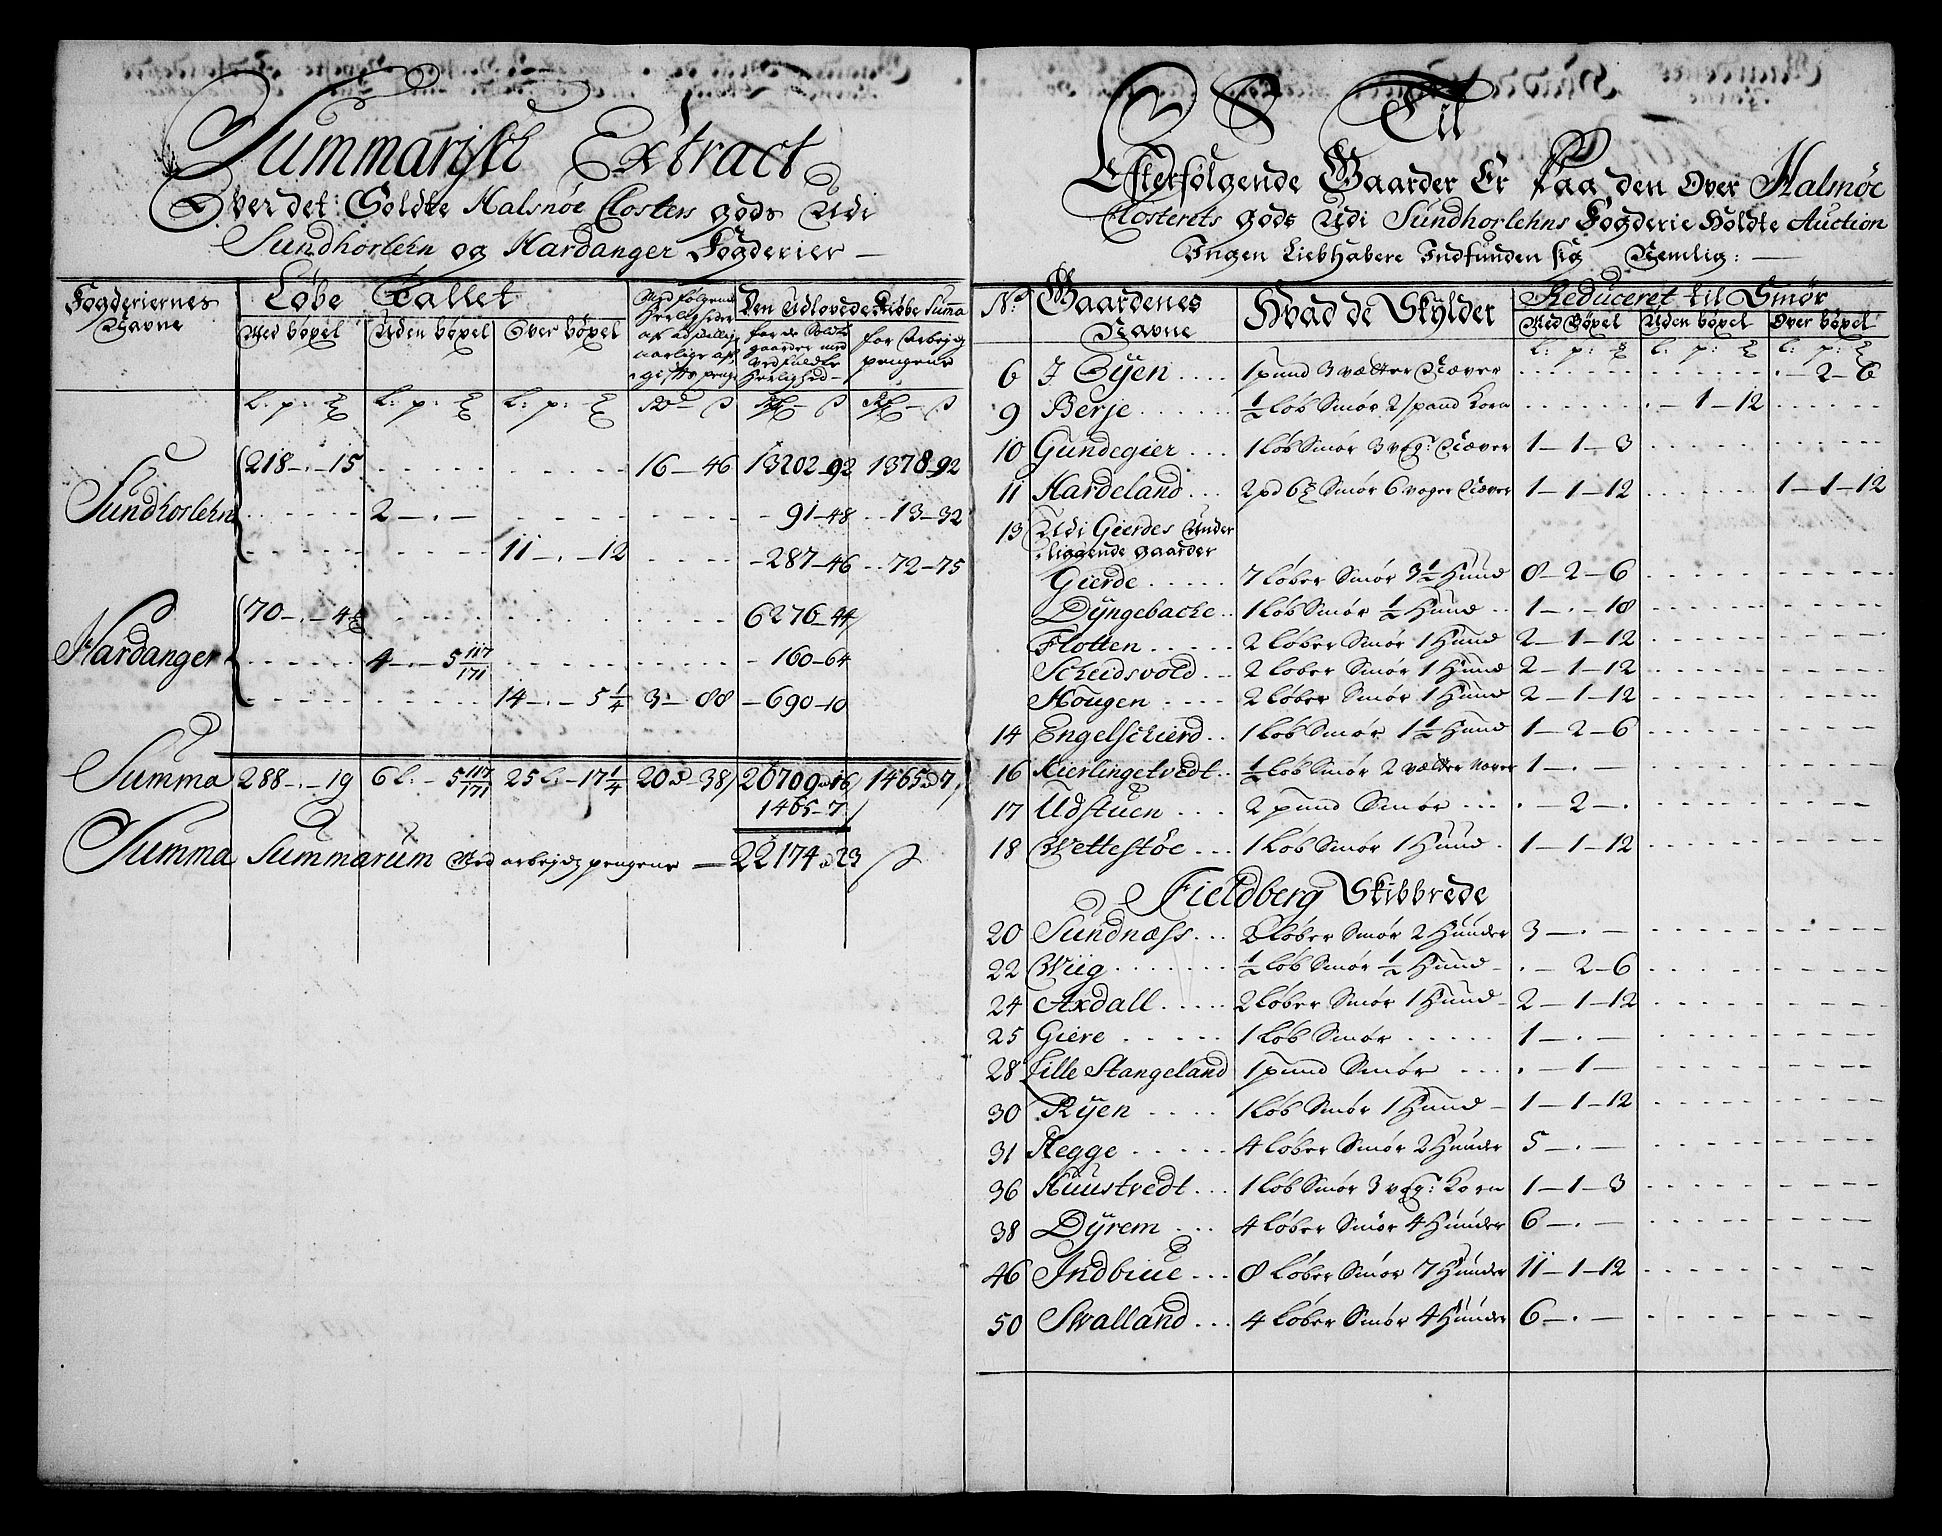 Summarisk Extract
Over det Holdte Halsnöe Closters gods Udi
Sundhorlehn og Hardanger Fogderier —
Fogderiernes Navne | Løbe Tallet | Med følgende Herligheder af aarlige afgifts penge | Den Udlovede Kiøbe Summa
Med bøxel | Uden bøxel | Over bøxel | for de Solte gaarder med Herlighed | for Arbejds pengene
l: p: ℔ | l: p: ℔ | l: p: ℔ | Rd — ß | Rd — ß | Rd — ß
Sundhorlehn | 218 — . — 15 | | | 16 — 46 | 13202 — 92 | 1378 — 92
2 — . — | 91 — 48 | 13 — 32
11 — . — 12 | 287 — 46 | 72 — 75
Hardanger | 70 — . — 4 | 6276 — 44
4 — . — 5 117/171 | 160 — 64
14 — . — 5 1/4 | 3 — 88 | 690 — 10
Summa | 288 — . — 19 | 6 l. — 5 117/171 | 25 l. — 17 1/4 | 20 — 38 | 20709 — 16 | 1465 — 7
1465 — 7
Summa Summarum Med arbejds pengene — 22174 — 23 ß
Til
Efterfølgende Gaarder Er Paa den Over Halsnöe
Closterets gods Udi Sundhorlehns Fogderie Holdte Auction
Ingen Liebhabere Indfunden sig Nemlig: —
No | Gaardenes Navne | Hvad de Skylder | Reduceret til Smör
Med Bøxel | Uden bøxel | Over bøxel
l: p: ℔ | l: p: ℔ | l: p: ℔
6 | I Öyen | 1 pund 3 vætter Næver | | | . — 2 — 6
9 | Berje | 1/2 løb Smør 2 spand Korn | | . — 1 — 12
10 | Gundegier | 1 løb Smør 3 vog: Næver | 1 — 1 — 3
11 | Hardeland | 2 pd 6 ℔ Smør 6 voger Næver | 1 — 1 — 12 | | 1 — 1 — 12
13 | Udi Gierdes Under
liggende gaarder
Gierde | 7 løber Smør 3 1/2 Hund | 8 — 2 — 6
Dÿngebacke | 1 løb Smør 1/2 Hund | 1 — . — 18
Flotten | 2 løber Smør 1 Hund | 2 — 1 — 12
Scheidsvold | 2 løber Smør 1 Hund | 2 — 1 — 12
Hougen | 2 løber Smør 1 Hund | 2 — 1 — 12
14 | Engelschierd | 1 løb Smør 1 1/2 Hund | 1 — 2 — 6
16 | Kierlingetvedt | 1/2 løb Smør 2 vætter | 1 — . —
17 | Udstuen | 2 pund Smør | . — 2 — .
18 | Wettestöe | 1 løb Smør 1 Hund | 1 — 1 — 12
Fieldberg Skibbrede
20 | Sundnæss | 2 løber Smør 2 Hunder | 3 — . —
22 | Wiig | 1/2 løb Smør 1/2 Hund | . — 2 — 6
24 | Axdall | 2 løber Smør 1 Hund | 2 — 1 — 12
25 | Giere | 1 løb Smør | 1 — . —
28 | Lille Stangeland | 1 pund Smør | . — 1 —
30 | Rÿen | 1 løb Smør 1 Hund | 1 — 1 — 12
31 | Hegge | 4 løber Smør 2 Hunder | 5 — . —
36 | Huustvedt | 1 løb Smør 3 vog: Korn | 1 — 1 — 3
38 | Dÿrem | 4 løber Smør 4 Hunder | 6 — . —
46 | Indbiue | 8 løber Smør 7 Hunder | 11 — 1 — 12
50 | Svalland | 4 løber Smør 4 Hunder | 6 — . —